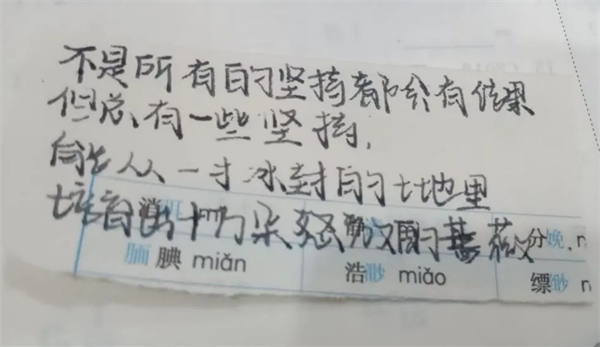 不是所有的坚持都会有结果
但总有一些坚持,
能从一寸冰封的土地里
培育出十万朵怒放的蔷薇
分娩.
腼腆 miǎn
浩渺 miǎo
缥缈